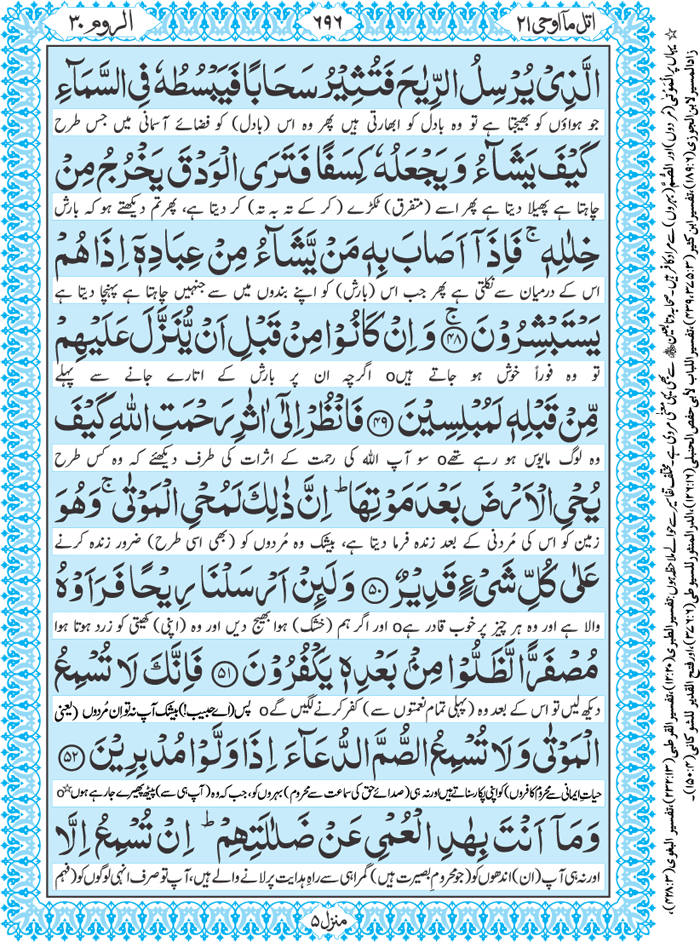 اتل مآ اوحی ۲۱
۶۹۶
الروم ۳۰
الَّذِیْ یُرْسِلُ الرِّیٰحَ فَتُثِیْرُ سَحَابًا فَیَبْسُطُهٗ فِی السَّمَآءِ
جو ہواؤں کو بھیجتا ہے تو وہ بادل کو ابھارتی ہیں پھر وہ اس (بادل) کو فضائے آسمانی میں جس طرح
کَیْفَ یَشَآءُ وَ یَجْعَلُهٗ کِسَفًا فَتَرَی الْوَدْقَ یَخْرُجُ مِنْ
چاہتا ہے پھیلا دیتا ہے پھر اسے (متفرق) ٹکڑے (کر کے تہ بہ تہ) کر دیتا ہے، پھر تم دیکھتے ہو کہ بارش
خِلٰلِهٖ ۚ فَاِذَاۤ اَصَابَ بِهٖ مَنْ یَّشَآءُ مِنْ عِبَادِهٖۤ اِذَا هُمْ
اس کے درمیان سے نکلتی ہے پھر جب اس (بارش) کو اپنے بندوں میں سے جنہیں چاہتا ہے پہنچا دیتا ہے
یَسْتَبْشِرُوْنَ ۚ ﴿۴۸﴾ وَ اِنْ کَانُوْا مِنْ قَبْلِ اَنْ یُّنَزَّلَ عَلَیْهِمْ
تو وہ فوراً خوش ہو جاتے ہیںo اگرچہ ان پر بارش کے اتارے جانے سے پہلے
مِّنْ قَبْلِهٖ لَمُبْلِسِیْنَ ﴿۴۹﴾ فَانْظُرْ اِلٰۤی اٰثٰرِ رَحْمَتِ اللّٰهِ کَیْفَ
وہ لوگ مایوس ہو رہے تھےo سو آپ اللہ کی رحمت کے اثرات کی طرف دیکھئے کہ وہ کس طرح
یُحْیِ الْاَرْضَ بَعْدَ مَوْتِهَا ؕ اِنَّ ذٰلِکَ لَمُحْیِ الْمَوْتٰی ۚ وَهُوَ
زمین کو اس کی مُردنی کے بعد زندہ فرما دیتا ہے، بیشک وہ مُردوں کو (بھی اسی طرح) ضرور زندہ کرنے
عَلٰی کُلِّ شَیْءٍ قَدِیْرٌ ﴿۵۰﴾ وَ لَئِنْ اَرْسَلْنَا رِیْحًا فَرَاَوْهُ
والا ہے اور وہ ہر چیز پر خوب قادر ہےo اور اگر ہم (خشک) ہوا بھیج دیں اور وہ (اپنی) کھیتی کو زرد ہوتا ہوا
مُصْفَرًّا لَّظَلُّوْا مِنْۢ بَعْدِهٖ یَکْفُرُوْنَ ﴿۵۱﴾ فَاِنَّکَ لَا تُسْمِعُ
دیکھ لیں تو اس کے بعد وہ (پہلی تمام نعمتوں سے) کفر کرنے لگیں گےo پس (اے حبیب!) بیشک آپ نہ تو اِن مُردوں (یعنی
الْمَوْتٰی وَلَا تُسْمِعُ الصُّمَّ الدُّعَآءَ اِذَا وَلَّوْا مُدْبِرِیْنَ ﴿۵۲﴾
حیاتِ ایمانی سے محروم کافروں) کو اپنی پکار سناتے ہیں اور نہ ہی (صدائے حق کی سماعت سے محروم) بہروں کو، جب کہ وہ (آپ ہی سے) پیٹھ پھیرے جا رہے ہوںo☆
وَ مَاۤ اَنْتَ بِهٰدِ الْعُمْیِ عَنْ ضَلٰلَتِهِمْ ؕ اِنْ تُسْمِعُ اِلَّا
اور نہ ہی آپ (ان) اندھوں کو (جو محرومِ بصیرت ہیں) گمراہی سے راہِ ہدایت پر لانے والے ہیں، آپ تو صرف انہی لوگوں کو (فہم
منزل ۵
☆ یہاں پر الْمَوْتٰی (مُردوں) اور الصُّمَّ (بہروں) سے مراد کافر ہیں۔ صحابہ و تابعین سے بھی یہی معنی مروی ہے۔ مختلف تفاسیر سے حوالے ملاحظہ ہوں: تفسیر الطبری (۲۰: ۱۲)، تفسیر القرطبی (۱۳: ۲۳۲)، تفسیر البغوی (۳: ۴۲۸)،
زاد المسیر لابن الجوزی (۶: ۱۸۹)، تفسیر ابن کثیر (۳: ۳۷۵، ۴۳۹)، تفسیر اللباب لأبی حفص الحنبلی (۱۶: ۱۲۶)، الدر المنثور للسیوطی (۶: ۳۷۶)، اور فتح القدیر للشوکانی (۴: ۱۵۰)۔